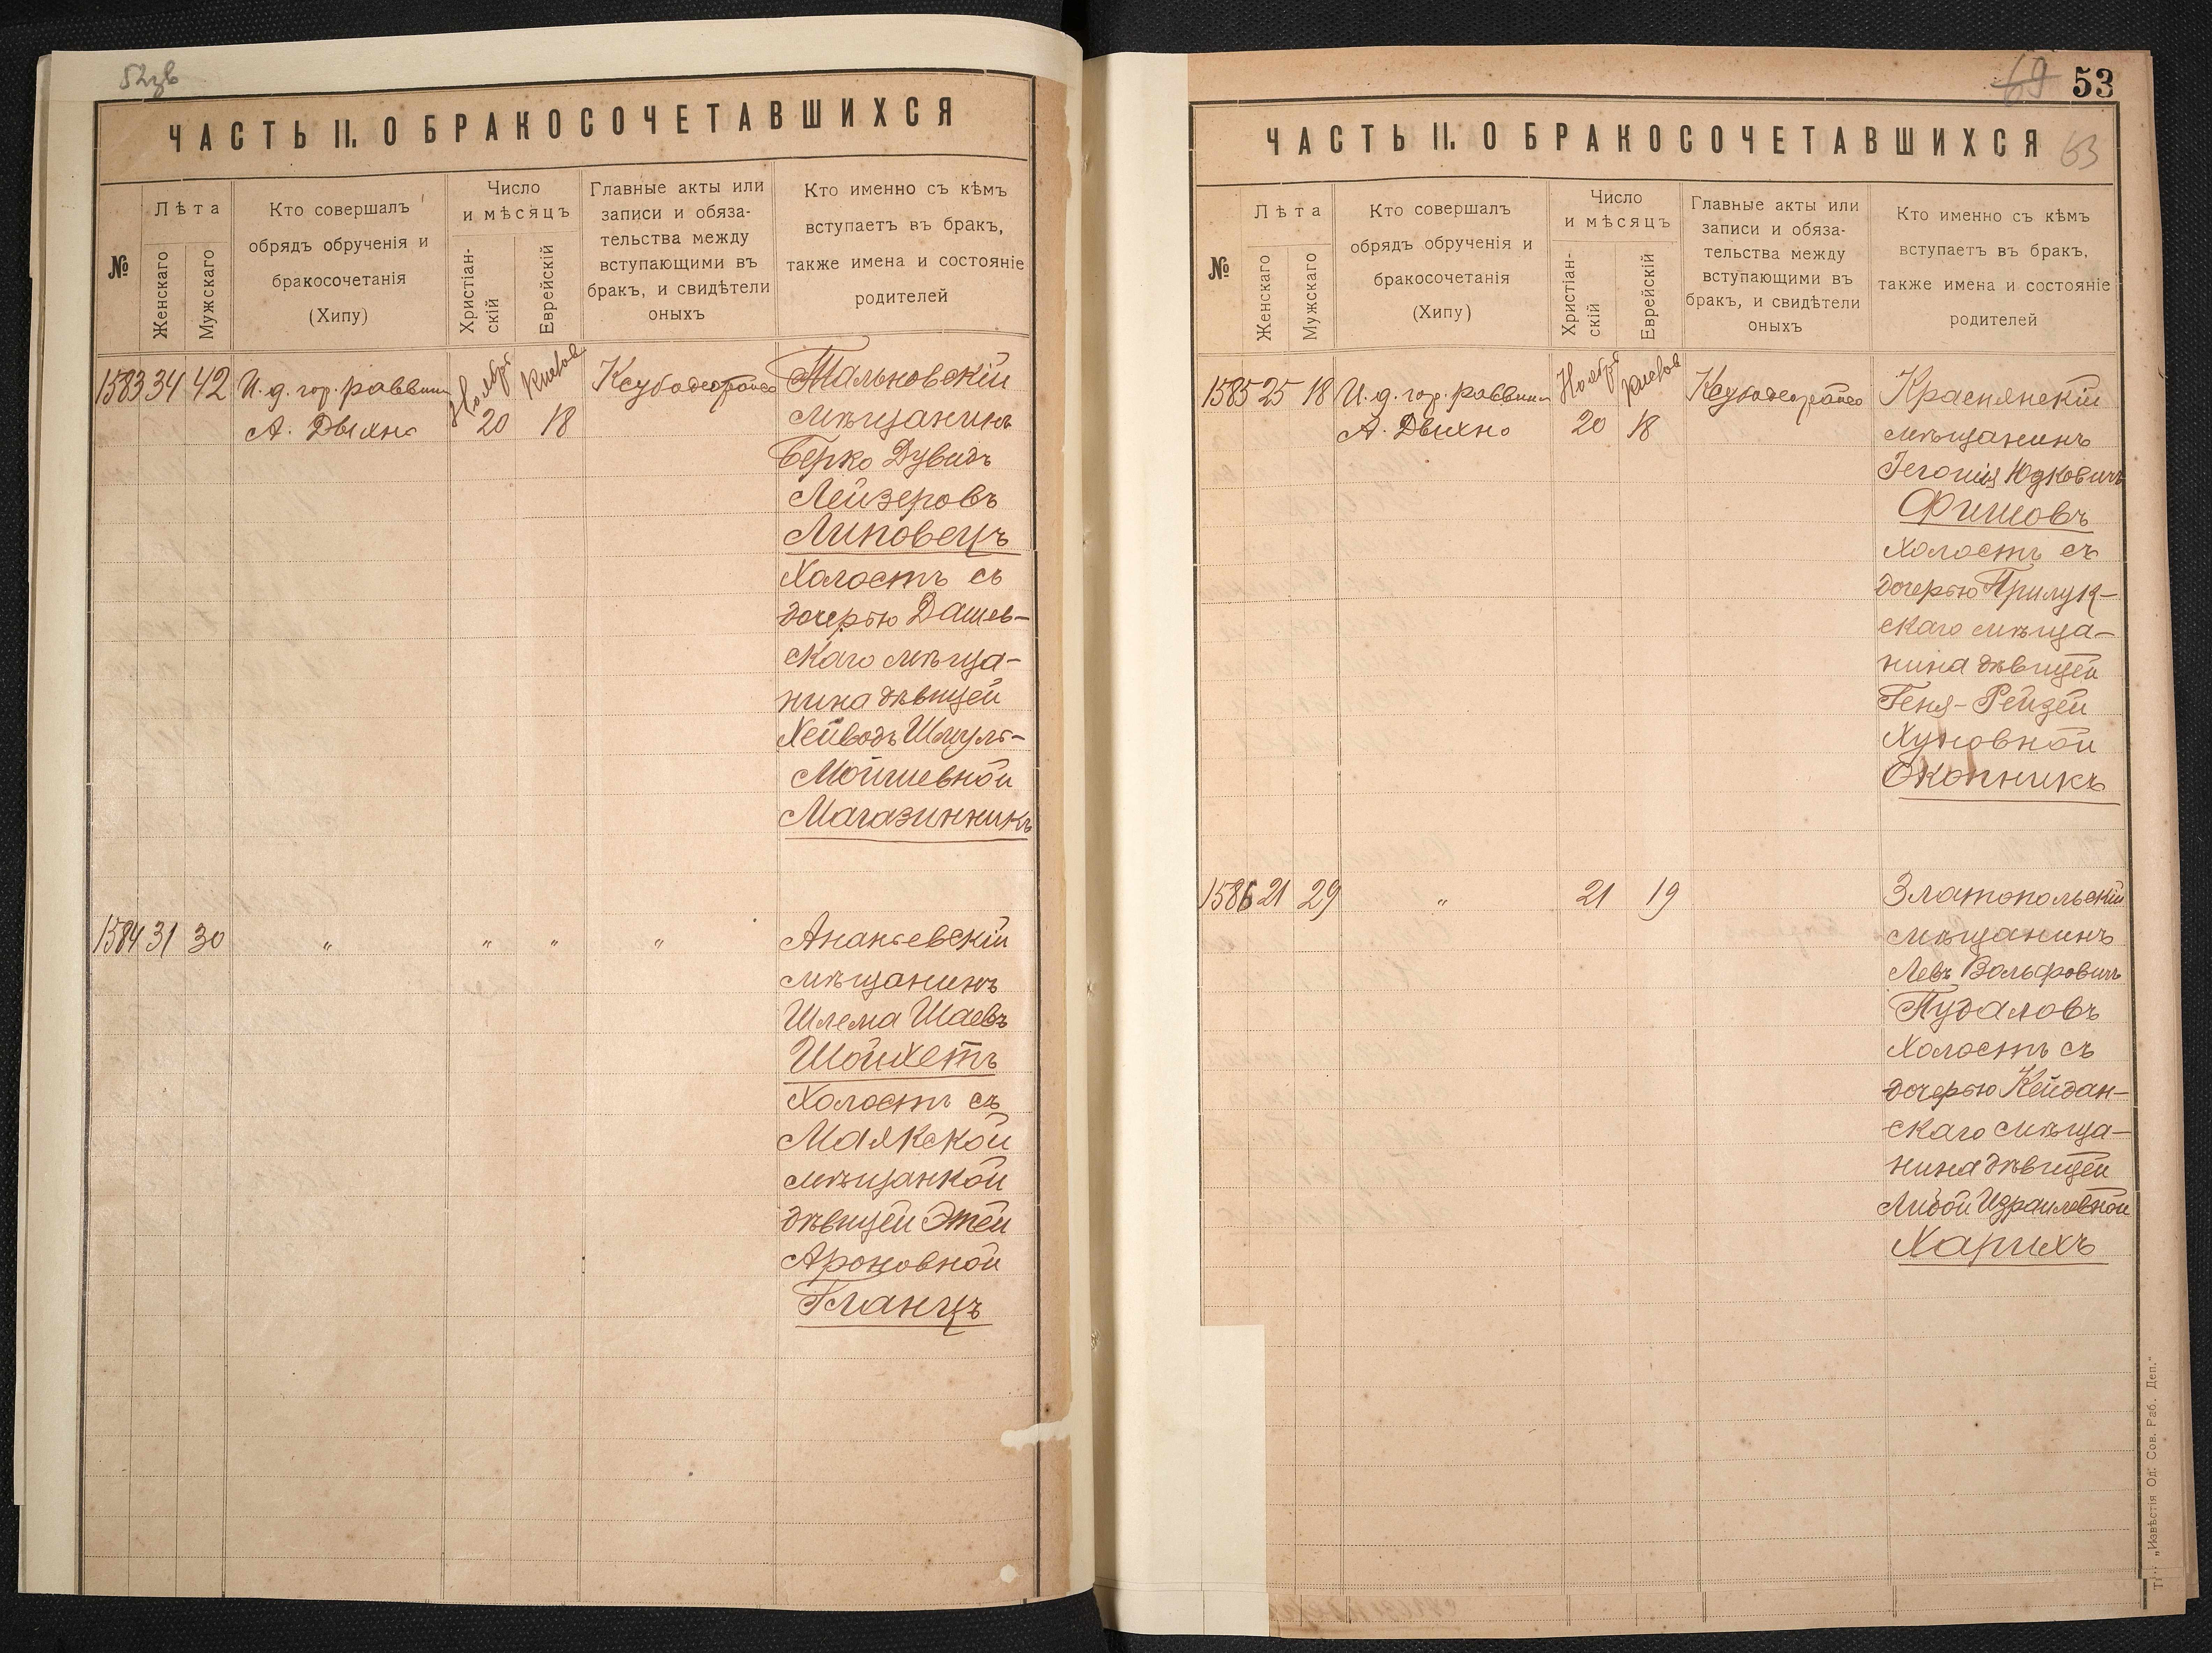 52зв
ЧАСТЬ II. О БРАКОСОЧЕТАВШИХСЯ
№
Лѣта
Женскаго
Мужскаго
Кто совершалъ
обрядъ обрученія и
бракосочетанія
(Хипу)
Число
и мѣсяцъ
Христіан-
скій
Еврейскій
Главные акты или
записи и обяза-
тельства между
вступающими въ
бракъ, и свидѣтели
оныхъ
Кто именно съ кѣмъ
вступаетъ въ бракъ,
также имена и состояніе
родителей
1583 34 42 И.д. гор. раввин
А. Двихно
Ноябрь
20
Кислов
18
Тальновскій
мѣщанинъ
Берко Дувидъ
Лейзеровъ
Липовецъ
Холостъ съ
дочерью Дашев-
скаго мѣща-
нина дѣвицей
Хейводъ Шмуль-
Мойшевной
Магазинникъ
1584 31 30 " " " "
Ананьевскій
мѣщанинъ
Шлема Шаевъ
Шойхетъ
Холостъ съ
Маякской
мѣщанкой
дѣвицей Этей
Ароновной
Гланцъ
69 53
53
ЧАСТЬ II. О БРАКОСОЧЕТАВШИХСЯ
№
Лѣта
Женскаго
Мужскаго
Кто совершалъ
обрядъ обрученія и
бракосочетанія
(Хипу)
Число
и мѣсяцъ
Христіан-
скій
Еврейскій
Главные акты или
записи и обяза-
тельства между
вступающими въ
бракъ, и свидѣтели
оныхъ
Кто именно съ кѣмъ
вступаетъ въ бракъ,
также имена и состояніе
родителей
1585 25 18 И.д. гор. раввин
А. Двихно
Ноябрь
20
Кислов
18
Краснянскій
мѣщанинъ
Юдковичъ
Фишовъ
Холостъ съ
дочерью Прилук-
скаго мѣща-
нина дѣвицей
Геня-Рейзей
Хуновной
Окопникъ
1586 21 29 " 21 19
Златопольскій
мѣщанинъ
Левъ Вольфовичъ
Пудаловъ
Холостъ съ
дочерью Кейдан-
скаго мѣща-
нина дѣвицей
Либой Израилевной
Харихъ
„Извѣстія Од. Сов. Раб. Деп."